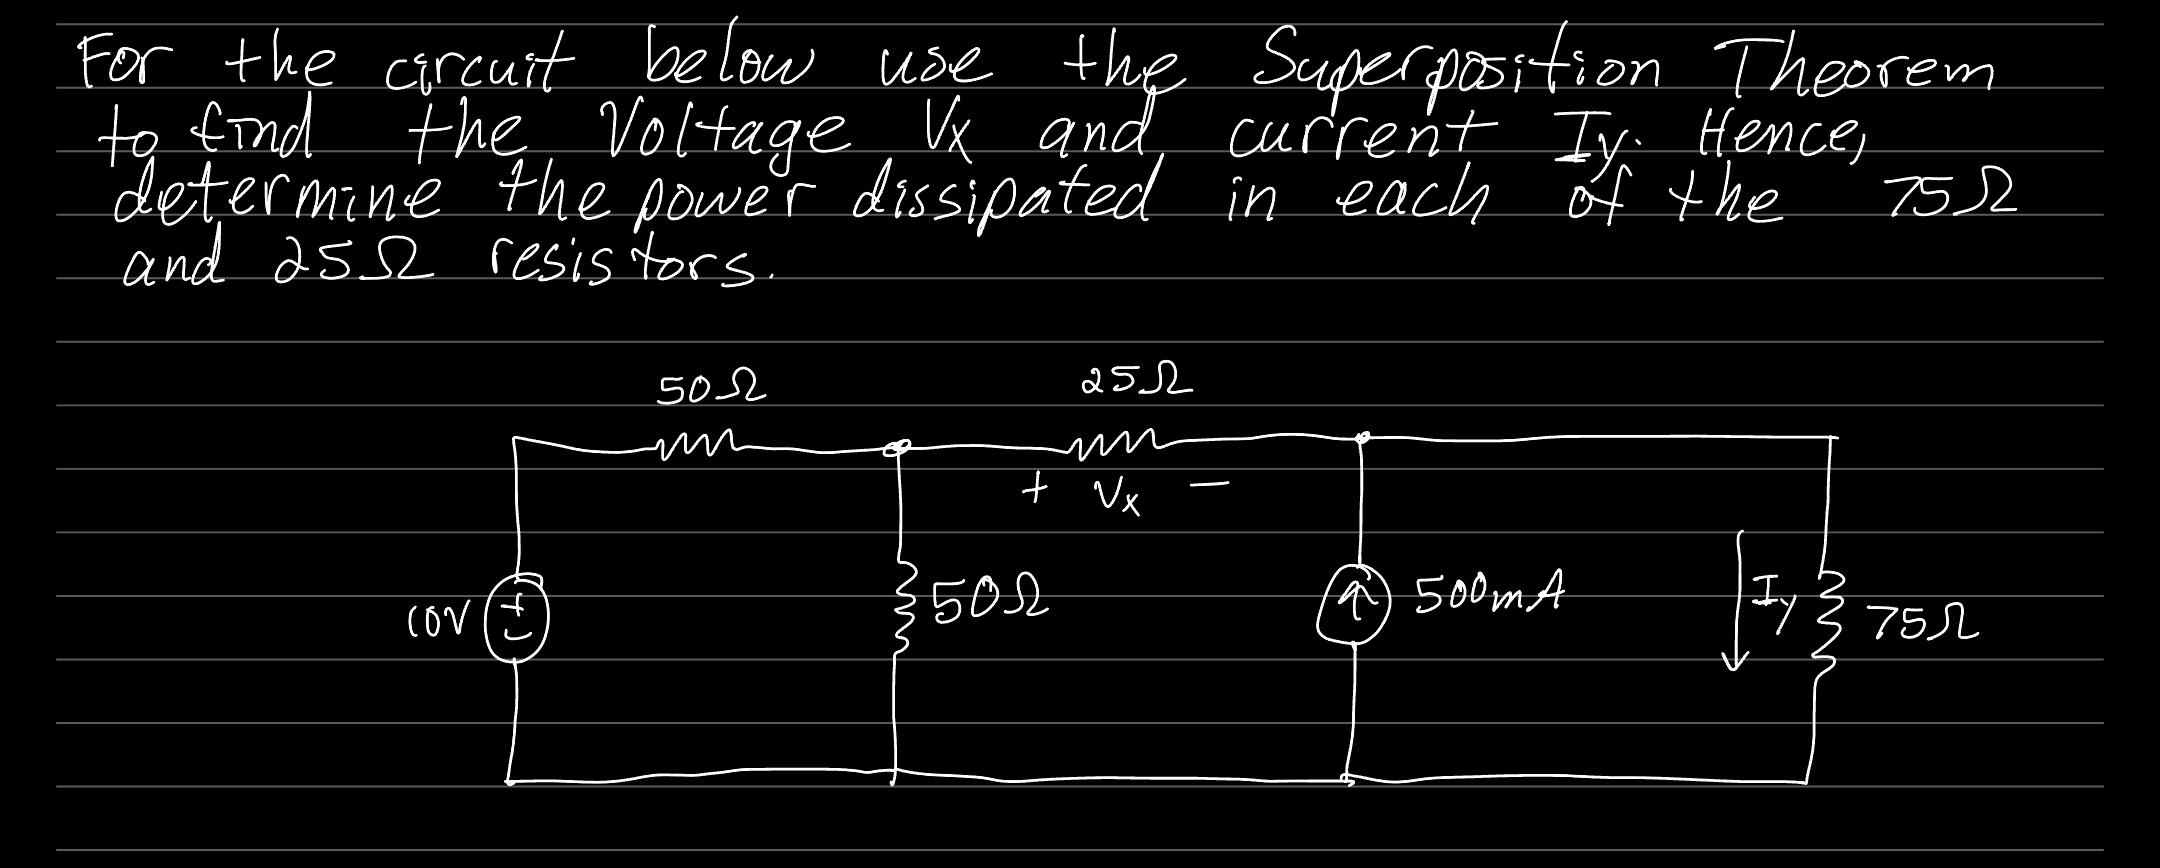 For the circuit below use the Superposition Theorem
to find the Voltage Vx and current Iy. Hence,
determine the power dissipated in each of the 75Ω
and 25Ω resistors.
50Ω
25Ω
+ Vx −
10V
+
−
50Ω
500mA
Iy
75Ω